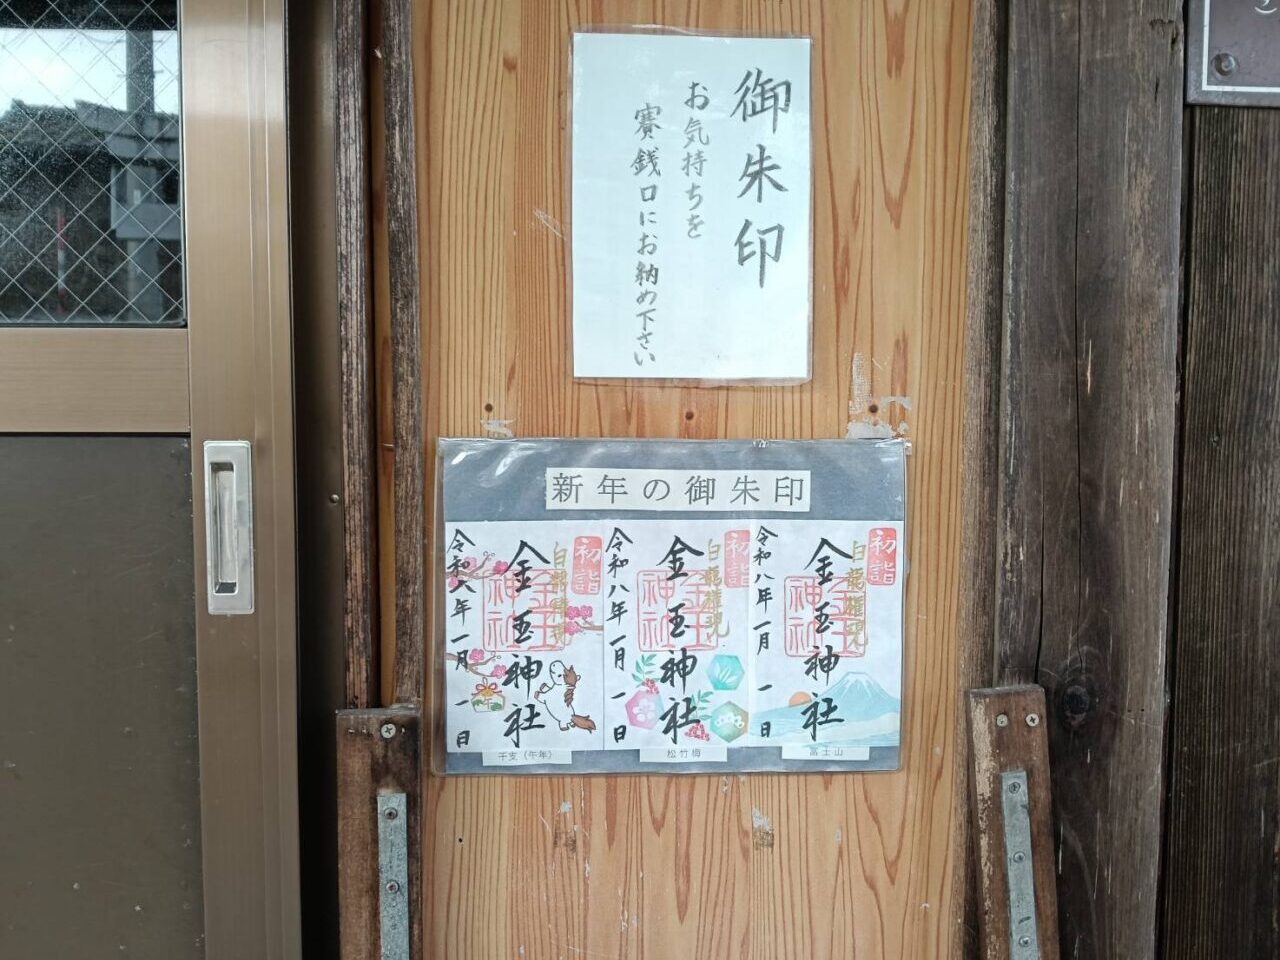 御朱印
お気持ちを
賽銭口にお納め下さい
新年の御朱印
初詣
白龍権現
金玉神社
金玉神社
令和八年一月一日
干支（午年）
初詣
白龍権現
金玉神社
金玉神社
令和八年一月一日
松竹梅
初詣
白龍権現
金玉神社
金玉神社
令和八年一月一日
富士山